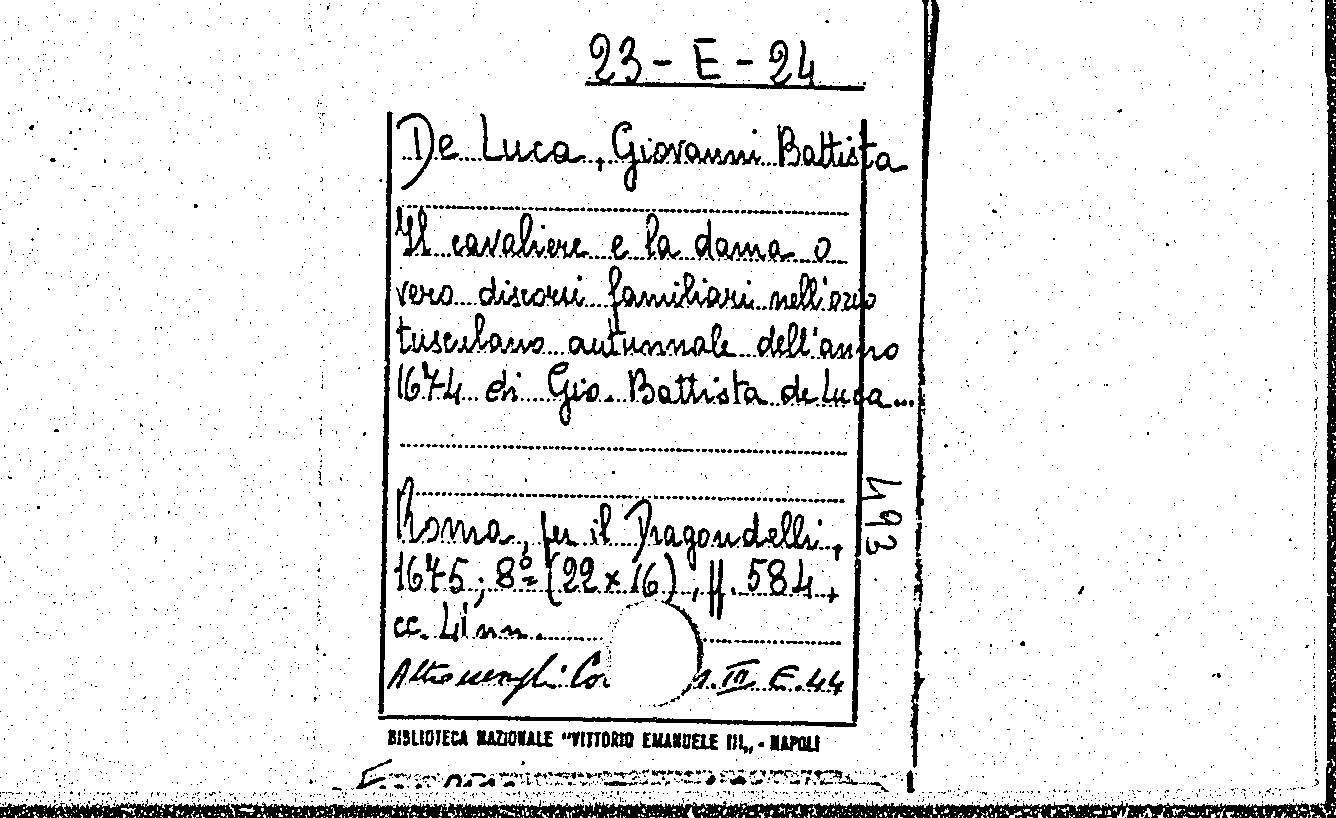 23 - E - 24
De Luca, Giovanni Battista
Il cavaliere e la dama o
vero discorsi familiari nell'ozio
tusculano autunnale dell'anno
1674 di Gio. Battista de Luca...
Roma, per il Dragondelli,
1675; 8º (22 x 16), ff. 584,
cc. 41 nn.
III E. 44
BIBLIOTECA NAZIONALE "VITTORIO EMANUELE III„ - NAPOLI
493